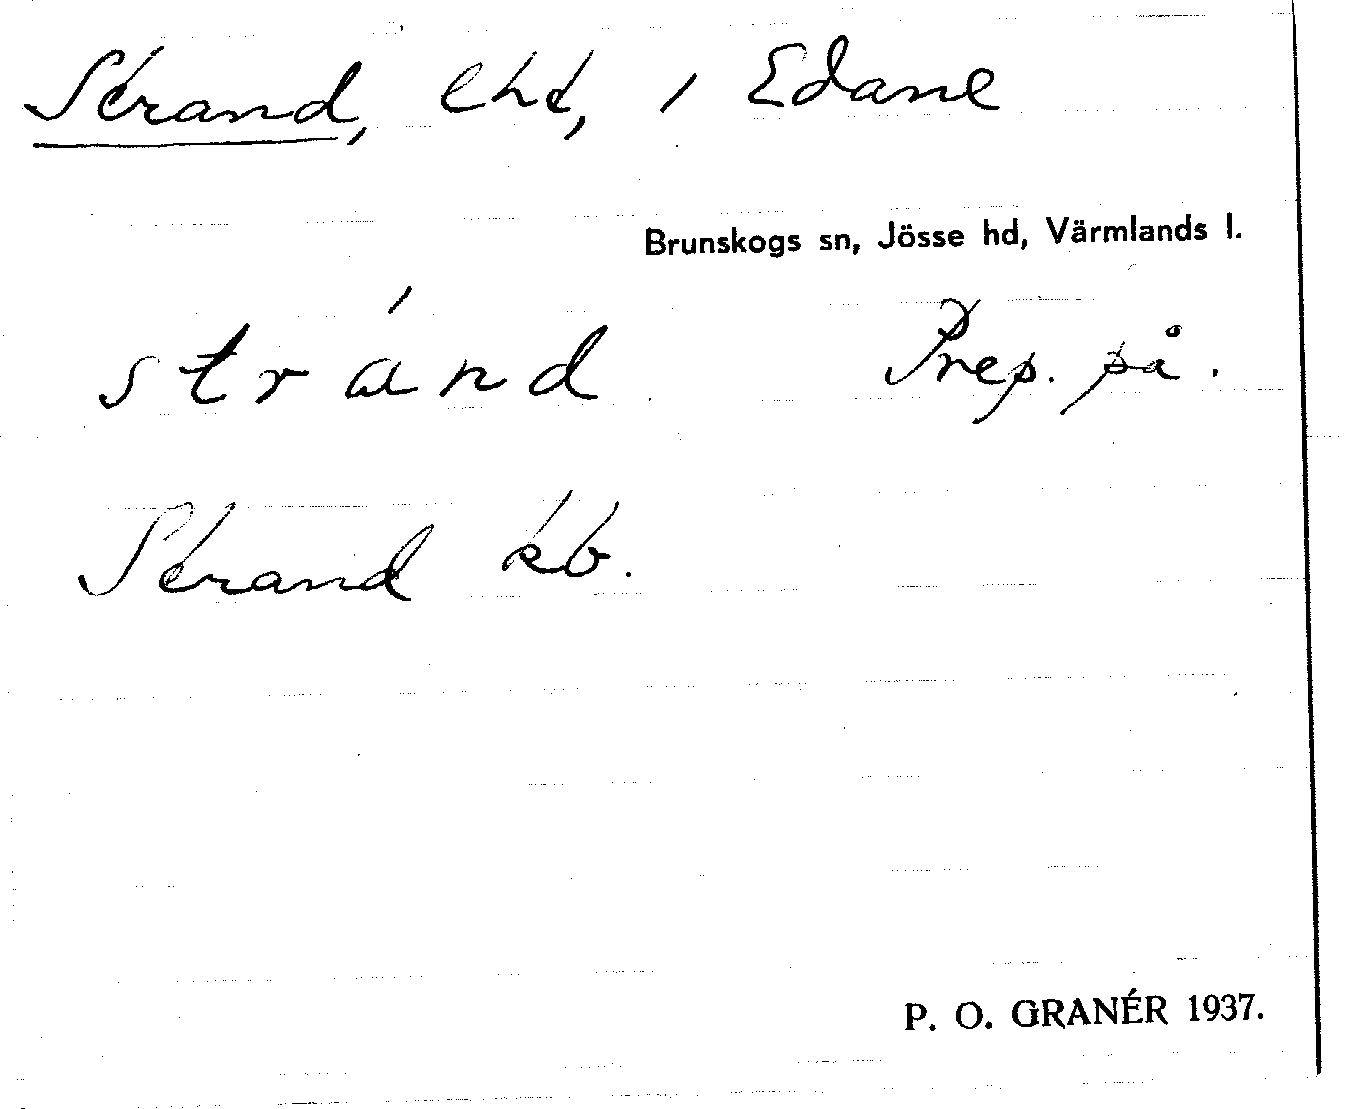 Strand, lht, i Edane
Brunskogs sn, Jösse hd, Värmlands l.
stránd Prep. på.
Strand kb.
P. O. GRANÉR 1937.